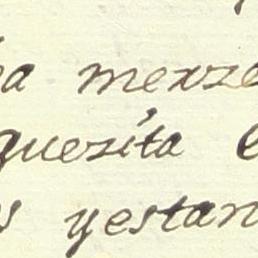 a merze
querita e
s yestan